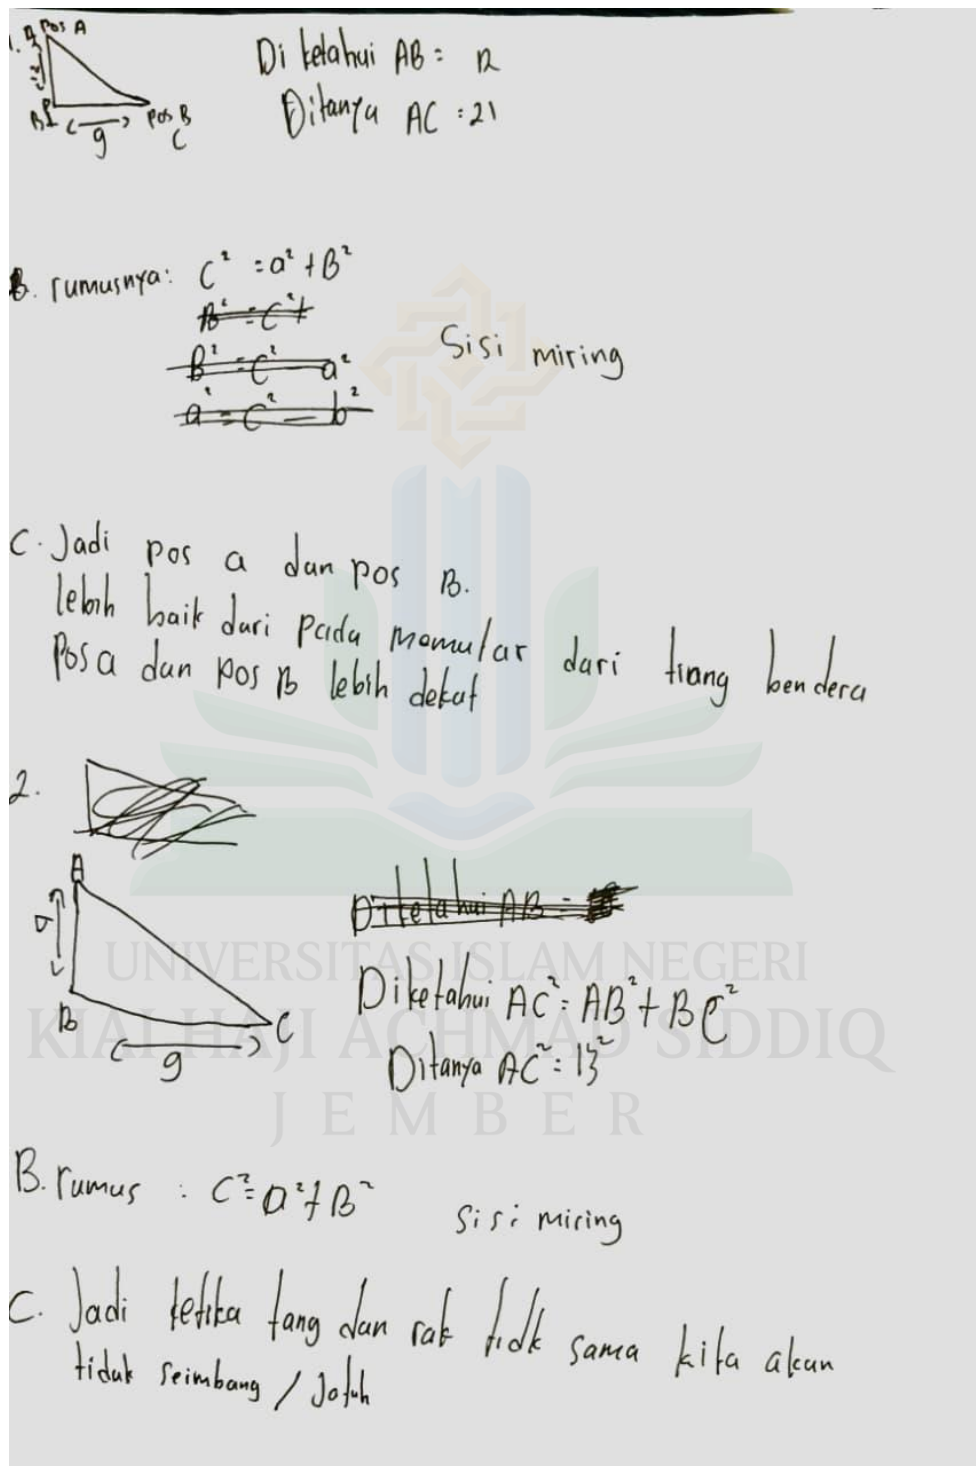 1. Pos A
B
g
Pos B
C
Di ketahui AB = 12
Ditanya AC = 21
B. rumusnya: C² = a² + B²
B² = C² +
B² = C² - a²
a² = C² - b²
Sisi miring
C. Jadi pos a dan pos B.
lebih baik dari pada memular dari tiang bendera
Pos a dan pos B lebih dekat
2.
A
B
C
g
Diketahui AB =
Diketahui AC² = AB² + BC²
Ditanya AC² = 13²
B. rumus : C² = a² + B²
Sisi miring
C. Jadi ketika tang dan rak tidk sama kita akan
tiduk seimbang / Jotuh
UNIVERSITAS ISLAM NEGERI
KIAI HAJI ACHMAD SIDDIQ
JEMBER